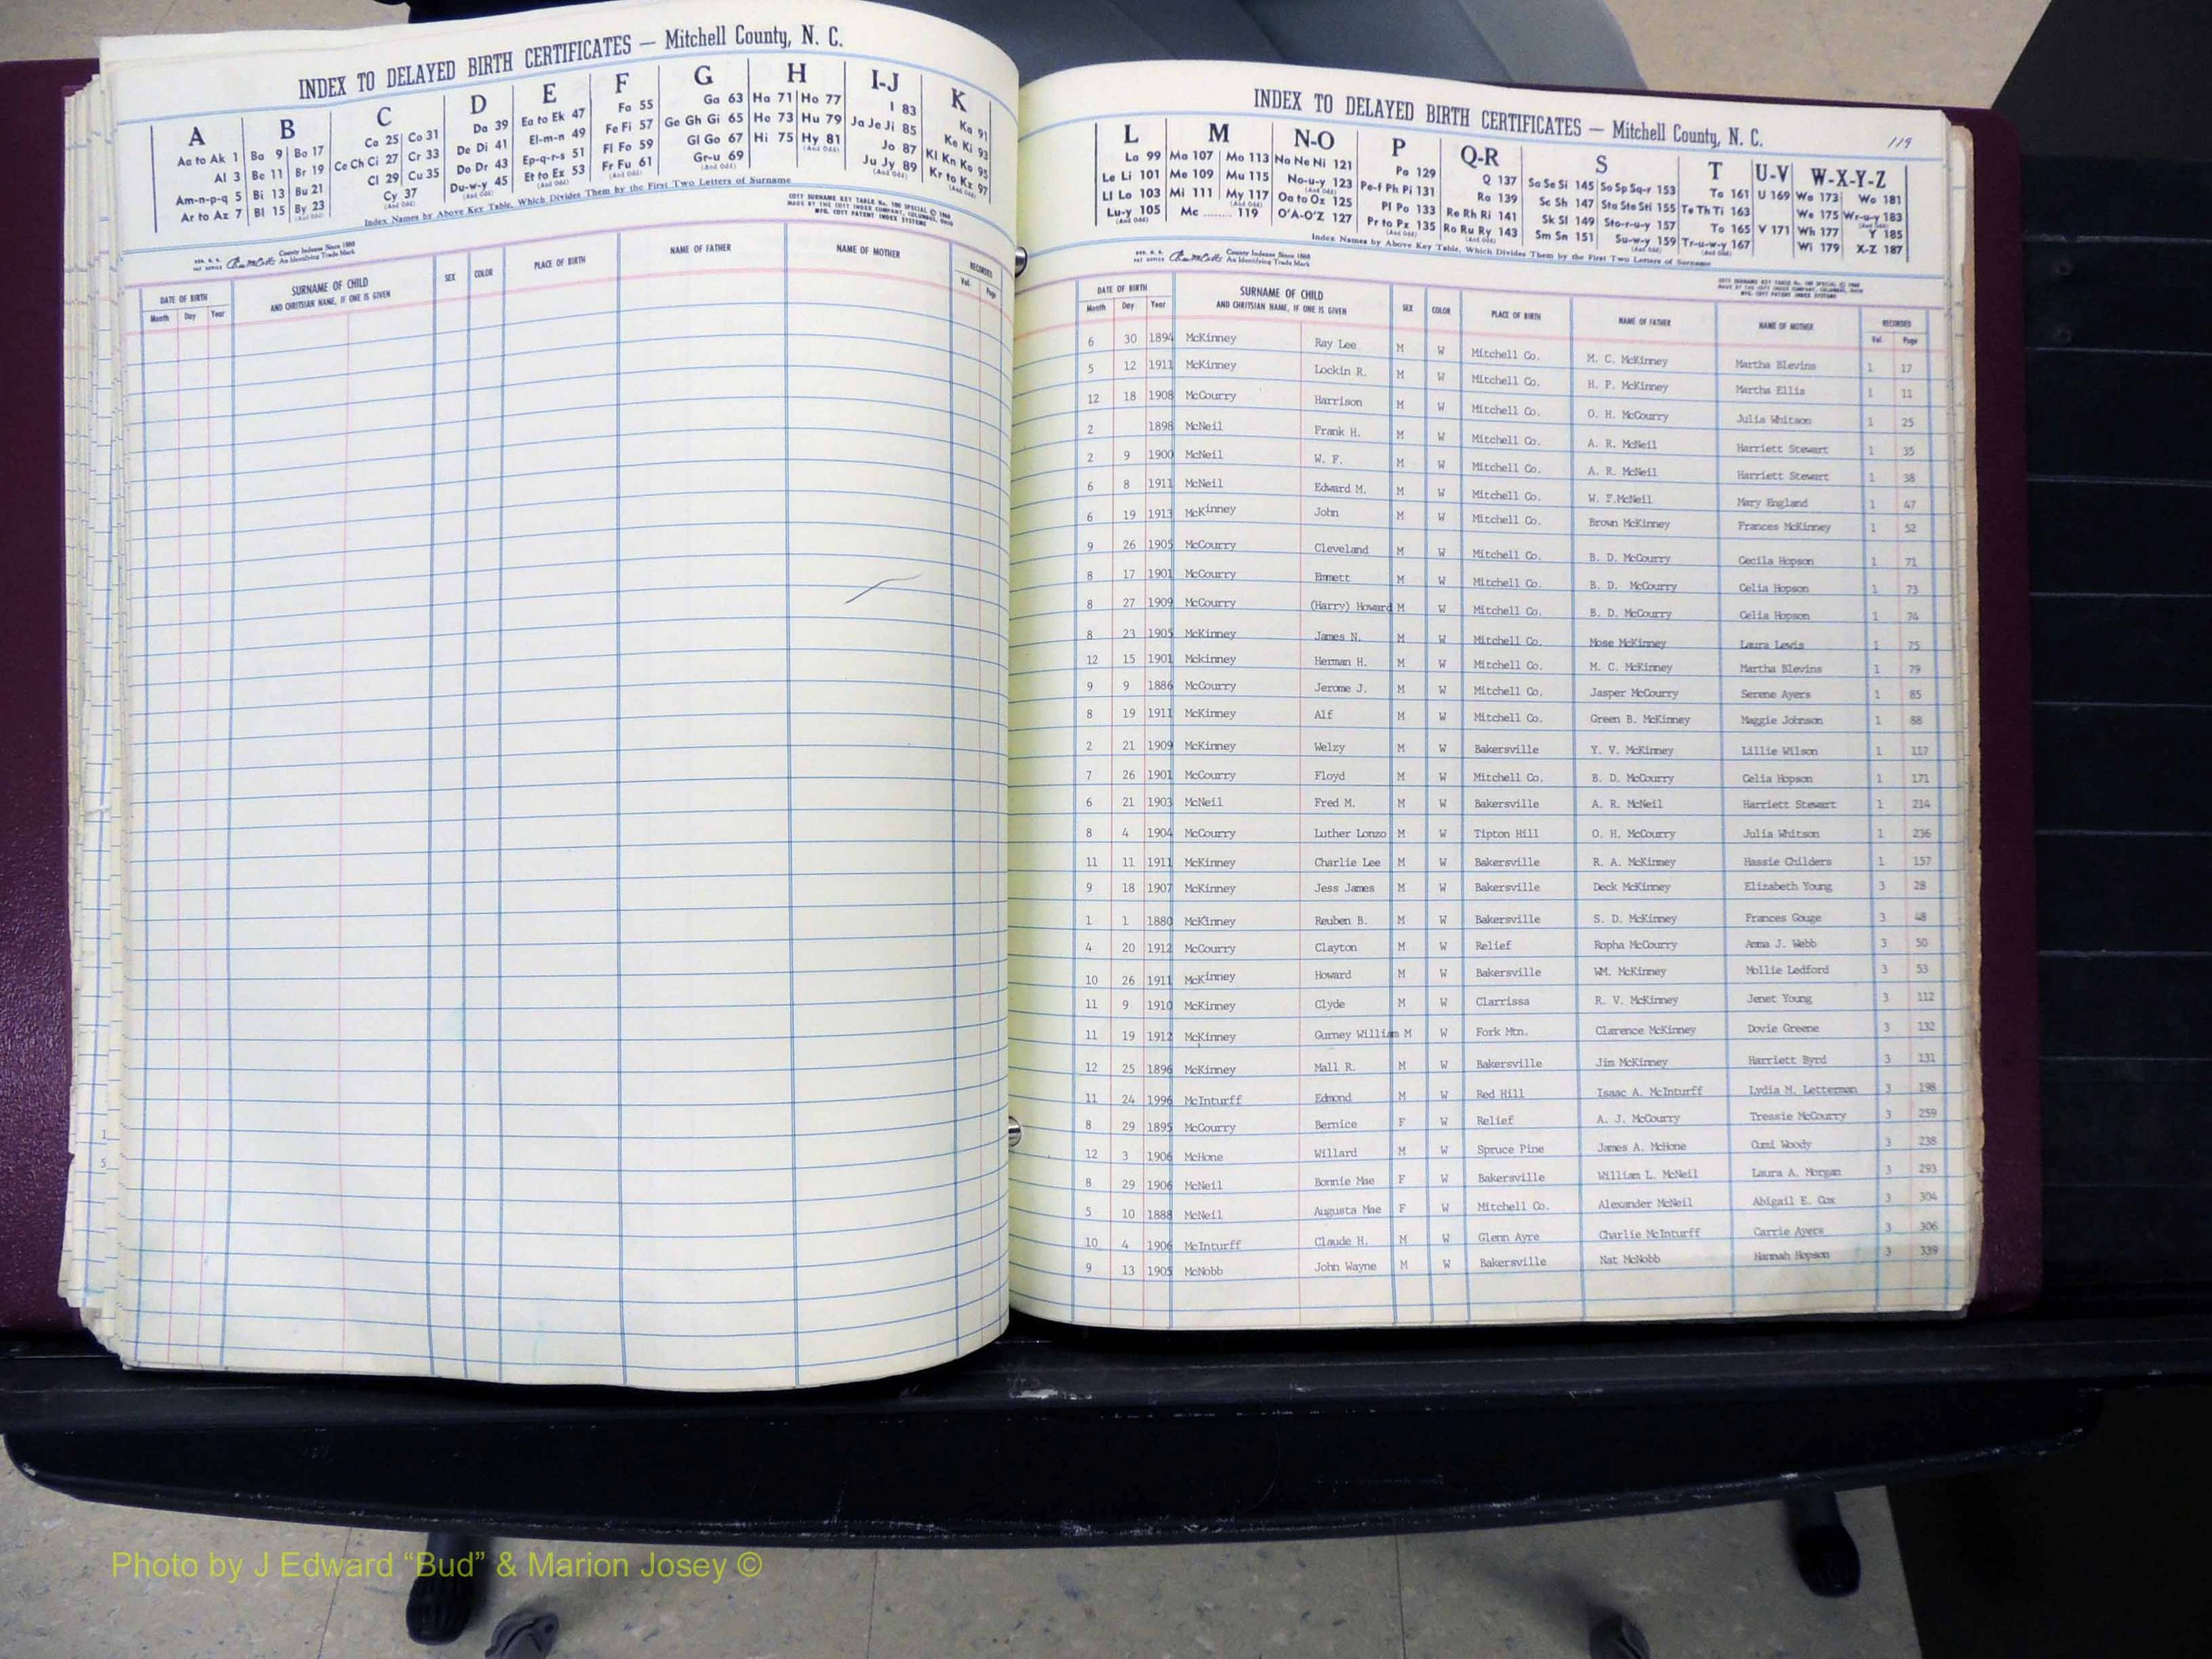 INDEX TO DELAYED BIRTH CERTIFICATES — Mitchell County, N. C.
A B C D E F G H I-J K
Aa to Ak 1 Ba 9 Bo 17 Ca 25 Co 31 Da 39 Ea to Ek 47 Fa 55 Ga 63 Ha 71 Ho 77 I 83 Ka 91
Al 3 Be 11 Br 19 Ce Ch Ci 27 Cr 33 De Di 41 El-m-n 49 Fe Fi 57 Ge Gh Gi 65 He 73 Hu 79 Ja Je Ji 85 Ke Ki 93
Am-n-p-q 5 Bi 13 Bu 21 Cl 29 Cu 35 Do Dr 43 Ep-q-r-s 51 Fl Fo 59 Gl Go 67 Hi 75 Hy 81 Jo 87 Kl Kn Ko 95
Ar to Az 7 Bl 15 By 23 Cy 37 Du-w-y 45 Et to Ez 53 Fr Fu 61 Gr-u 69 Ju Jy 89 Kr to Kz 97
Index Names by Above Key Table, Which Divides Them by the First Two Letters of Surname
COTT SURNAME KEY TABLE No. 100 SPECIAL © 1968
MADE BY THE COTT INDEX COMPANY, COLUMBUS, OHIO
MFG. COTT PATENT INDEX SYSTEMS
County Indexes Since 1888
An Identifying Trade Mark
DATE OF BIRTH
Month Day Year
SURNAME OF CHILD
AND CHRITSIAN NAME, IF ONE IS GIVEN
SEX COLOR PLACE OF BIRTH NAME OF FATHER NAME OF MOTHER RECORDED
Vol. Page
INDEX TO DELAYED BIRTH CERTIFICATES — Mitchell County, N. C.
119
L M N-O P Q-R S T U-V W-X-Y-Z
La 99 Ma 107 Mo 113 Na Ne Ni 121 Pa 129 Q 137 Sa Se Si 145 So Sp Sq-r 153 Ta 161 U 169 Wa 173 Wo 181
Le Li 101 Me 109 Mu 115 No-u-y 123 Pe-f Ph Pi 131 Ra 139 Sc Sh 147 Sta Ste Sti 155 Te Th Ti 163 We 175 Wr-u-y 183
Ll Lo 103 Mi 111 My 117 Oa to Oz 125 Pl Po 133 Re Rh Ri 141 Sk Sl 149 Sto-r-u-y 157 To 165 V 171 Wh 177 Y 185
Lu-y 105 Mc ........ 119 O'A-O'Z 127 Pr to Pz 135 Ro Ru Ry 143 Sm Sn 151 Su-w-y 159 Tr-u-w-y 167 Wi 179 X-Z 187
Index Names by Above Key Table, Which Divides Them by the First Two Letters of Surname
County Indexes Since 1888
An Identifying Trade Mark
COTT SURNAME KEY TABLE No. 100 SPECIAL © 1968
MADE BY THE COTT INDEX COMPANY, COLUMBUS, OHIO
MFG. COTT PATENT INDEX SYSTEMS
DATE OF BIRTH
Month Day Year
SURNAME OF CHILD
AND CHRITSIAN NAME, IF ONE IS GIVEN
SEX COLOR PLACE OF BIRTH NAME OF FATHER NAME OF MOTHER RECORDED
Vol. Page
6 30 1894 McKinney Ray Lee M W Mitchell Co. M. C. McKinney Martha Blevins 1 17
5 12 1911 McKinney Lockin R. M W Mitchell Co. H. P. McKinney Martha Ellis 1 11
12 18 1908 McCourry Harrison M W Mitchell Co. O. H. McCourry Julia Whitson 1 25
2 1898 McNeil Frank H. M W Mitchell Co. A. R. McNeil Harriett Stewart 1 35
2 9 1900 McNeil W. F. M W Mitchell Co. A. R. McNeil Harriett Stewart 1 38
6 8 1911 McNeil Edward M. M W Mitchell Co. W. F.McNeil Mary England 1 47
6 19 1913 McKinney John M W Mitchell Co. Brown McKinney Frances McKinney 1 52
9 26 1905 McCourry Cleveland M W Mitchell Co. B. D. McCourry Cecila Hopson 1 71
8 17 1901 McCourry Emmett M W Mitchell Co. B. D. McCourry Celia Hopson 1 73
8 27 1909 McCourry (Harry) Howard M W Mitchell Co. B. D. McCourry Celia Hopson 1 74
8 23 1905 McKinney James N. M W Mitchell Co. Mose McKinney Laura Lewis 1 75
12 15 1901 Mckinney Herman H. M W Mitchell Co. M. C. McKinney Martha Blevins 1 79
9 9 1886 McCourry Jerome J. M W Mitchell Co. Jasper McCourry Serene Ayers 1 85
8 19 1911 McKinney Alf M W Mitchell Co. Green B. McKinney Maggie Johnson 1 88
2 21 1909 McKinney Welzy M W Bakersville Y. V. McKinney Lillie Wilson 1 117
7 26 1901 McCourry Floyd M W Mitchell Co. B. D. McCourry Celia Hopson 1 171
6 21 1903 McNeil Fred M. M W Bakersville A. R. McNeil Harriett Stewart 1 214
8 4 1904 McCourry Luther Lonzo M W Tipton Hill O. H. McCourry Julia Whitson 1 236
11 11 1911 McKinney Charlie Lee M W Bakersville R. A. McKinney Hassie Childers 1 157
9 18 1907 McKinney Jess James M W Bakersville Deck McKinney Elizabeth Young 3 28
1 1 1880 McKinney Reuben B. M W Bakersville S. D. McKinney Frances Gouge 3 48
4 20 1912 McCourry Clayton M W Relief Ropha McCourry Anna J. Webb 3 50
10 26 1911 McKinney Howard M W Bakersville WM. McKinney Mollie Ledford 3 53
11 9 1910 McKinney Clyde M W Clarrissa R. V. McKinney Jenet Young 3 112
11 19 1912 McKinney Gurney William M W Fork Mtn. Clarence McKinney Dovie Greene 3 132
12 25 1896 McKinney Mall R. M W Bakersville Jim McKinney Harriett Byrd 3 131
11 24 1996 McInturff Edmond M W Red Hill Isaac A. McInturff Lydia M. Letterman 3 198
8 29 1895 McCourry Bernice F W Relief A. J. McCourry Tressie McCourry 3 259
12 3 1906 McHone Willard M W Spruce Pine James A. McHone Cumi Woody 3 238
8 29 1906 McNeil Bonnie Mae F W Bakersville William L. McNeil Laura A. Morgan 3 293
5 10 1888 McNeil Augusta Mae F W Mitchell Co. Alexander McNeil Abigail E. Cox 3 304
10 4 1906 McInturff Claude H. M W Glenn Ayre Charlie McInturff Carrie Ayers 3 306
9 13 1905 McNobb John Wayne M W Bakersville Nat McNobb Hannah Hopson 3 339
Photo by J Edward “Bud” & Marion Josey ©